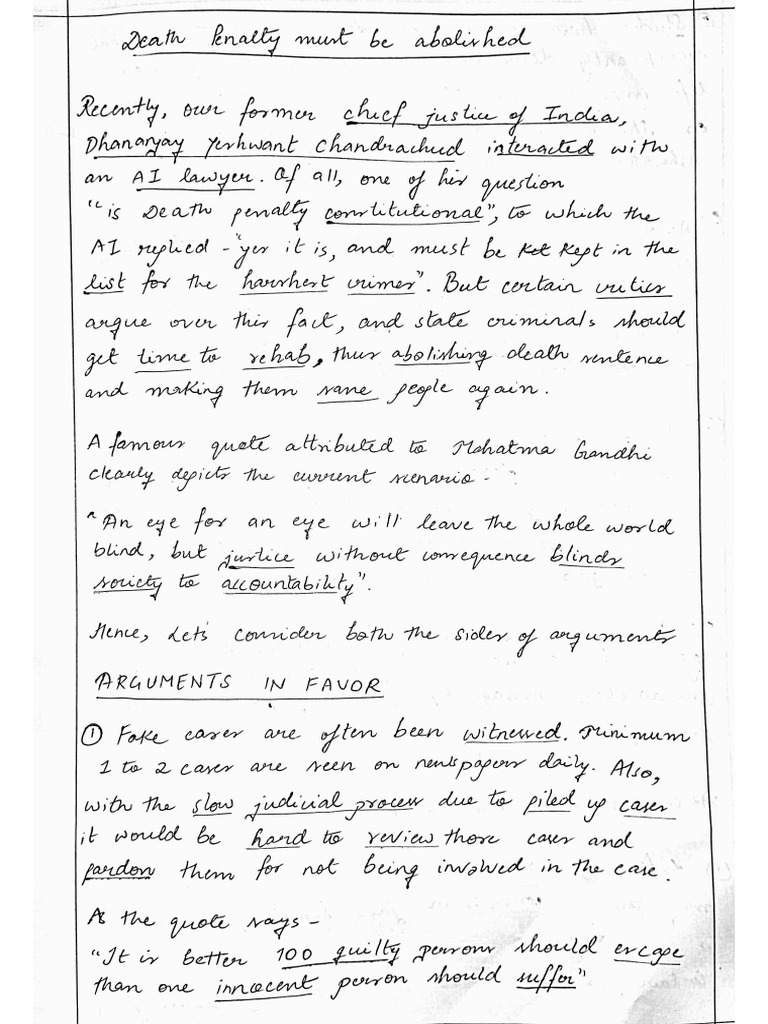 Death Penalty must be abolished
Recently, our former chief justice of India,
Dhananjay Yeshwant Chandrachud interacted with
an AI lawyer. Of all, one of his question
"is Death penalty constitutional", to which the
AI replied - "yes it is, and must be Kept in the
list for the harshest crimes". But certain critics
argue over this fact, and state criminals should
get time to rehab, thus abolishing death sentence
and making them sane people again.
A famous quote attributed to Mahatma Gandhi
clearly depicts the current scenario -
"An eye for an eye will leave the whole world
blind, but justice without consequence blinds
society to accountability".
Hence, Let's consider both the sides of arguments
ARGUMENTS IN FAVOR
① Fake cases are often been witnessed. Minimum
1 to 2 cases are seen on newspapers daily. Also,
with the slow judicial process due to piled up cases
it would be hard to review those cases and
pardon them for not being involved in the case.
As the quote says -
"It is better 100 guilty persons should escape
than one innocent person should suffer"